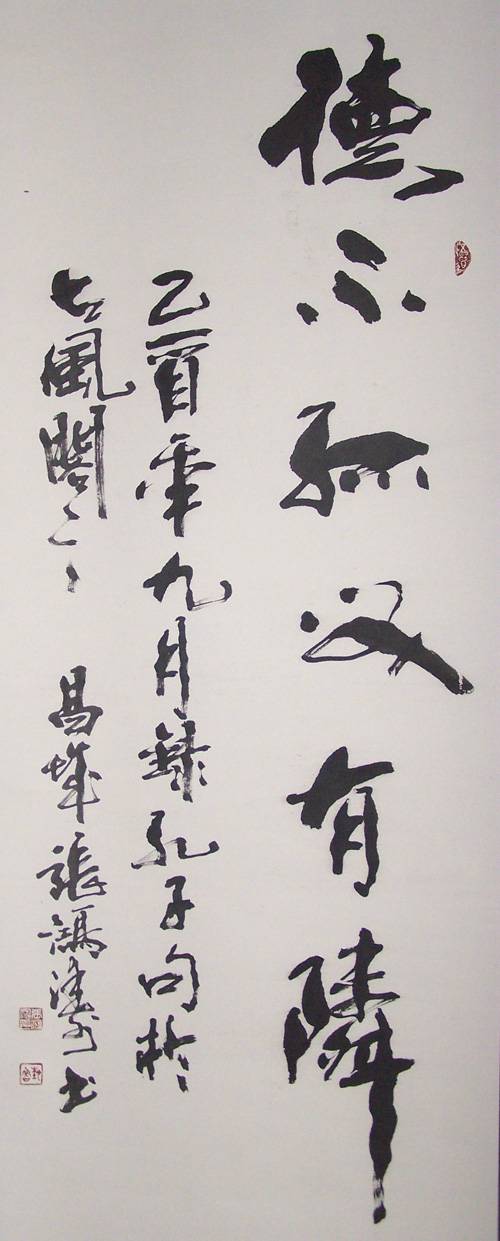 德不孤必有隣
乙酉年九月錄孔子句於
大風閣 昌 張 書